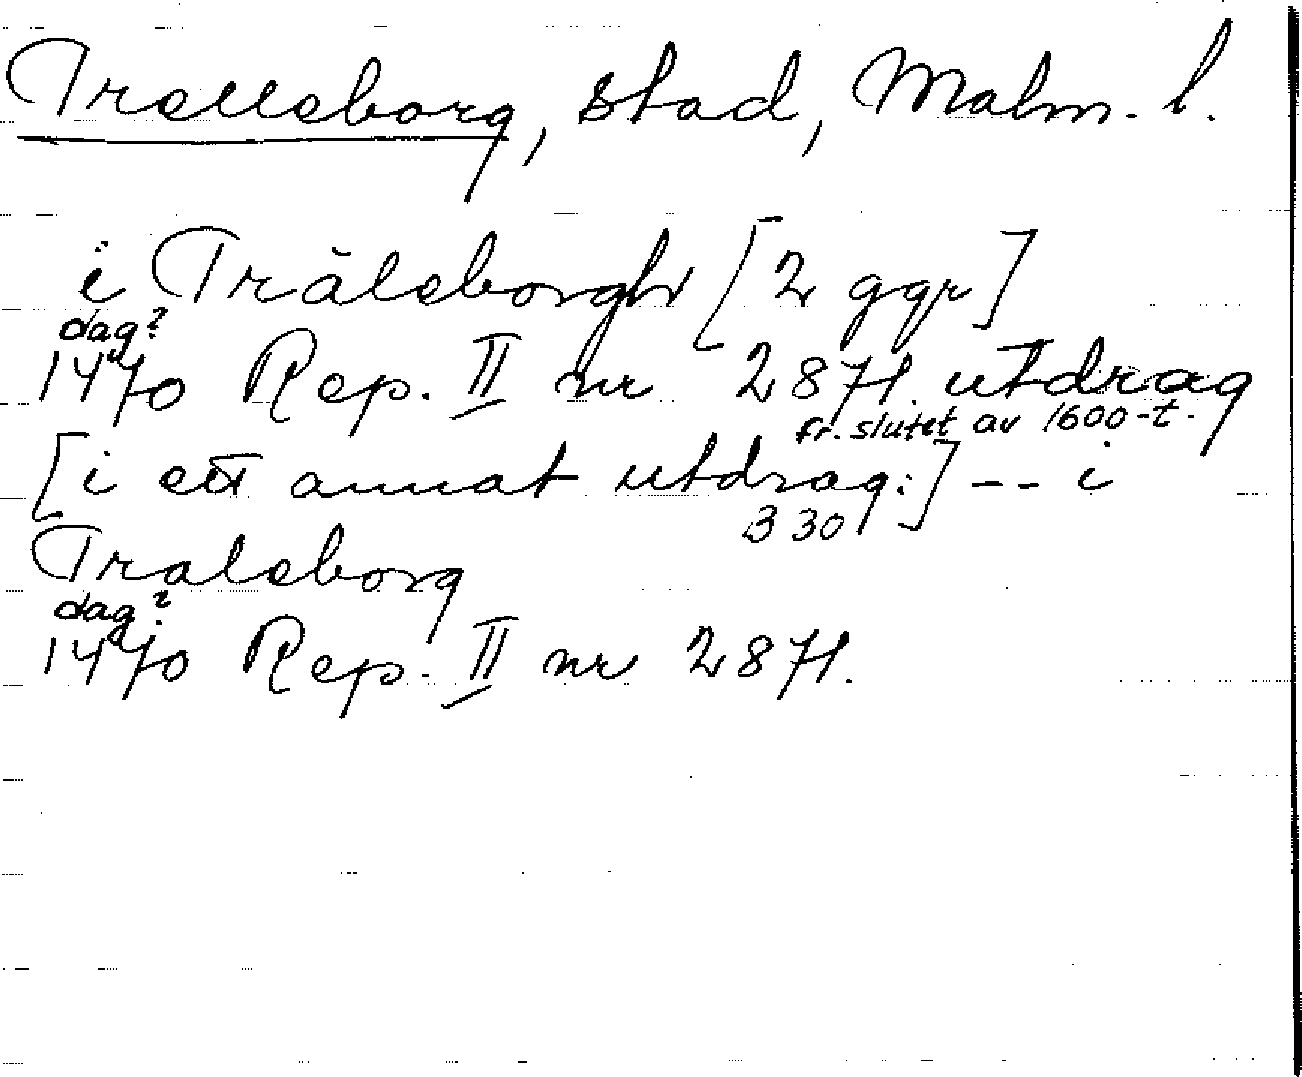 Trelleborg, stad, Malm. l.
i Träleborgh [2 ggr]
dag?
1470 Rep. II nr 2871. utdrag
fr. slutet av 1600-t.
[i ett annat utdrag:] -- i
B 30
Traleborg
dag?
1470 Rep. II nr 2871.